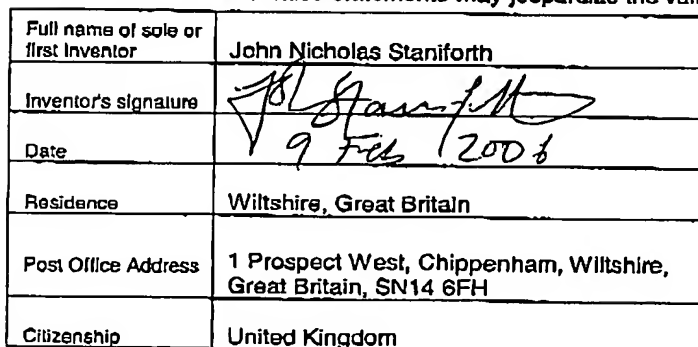 statements may jeopardize the
Full name of sole or
first inventor
John Nicholas Staniforth
Inventor's signature
Date
9 Feb 2006
Residence
Wiltshire, Great Britain
Post Office Address
1 Prospect West, Chippenham, Wiltshire,
Great Britain, SN14 6FH
Citizenship
United Kingdom